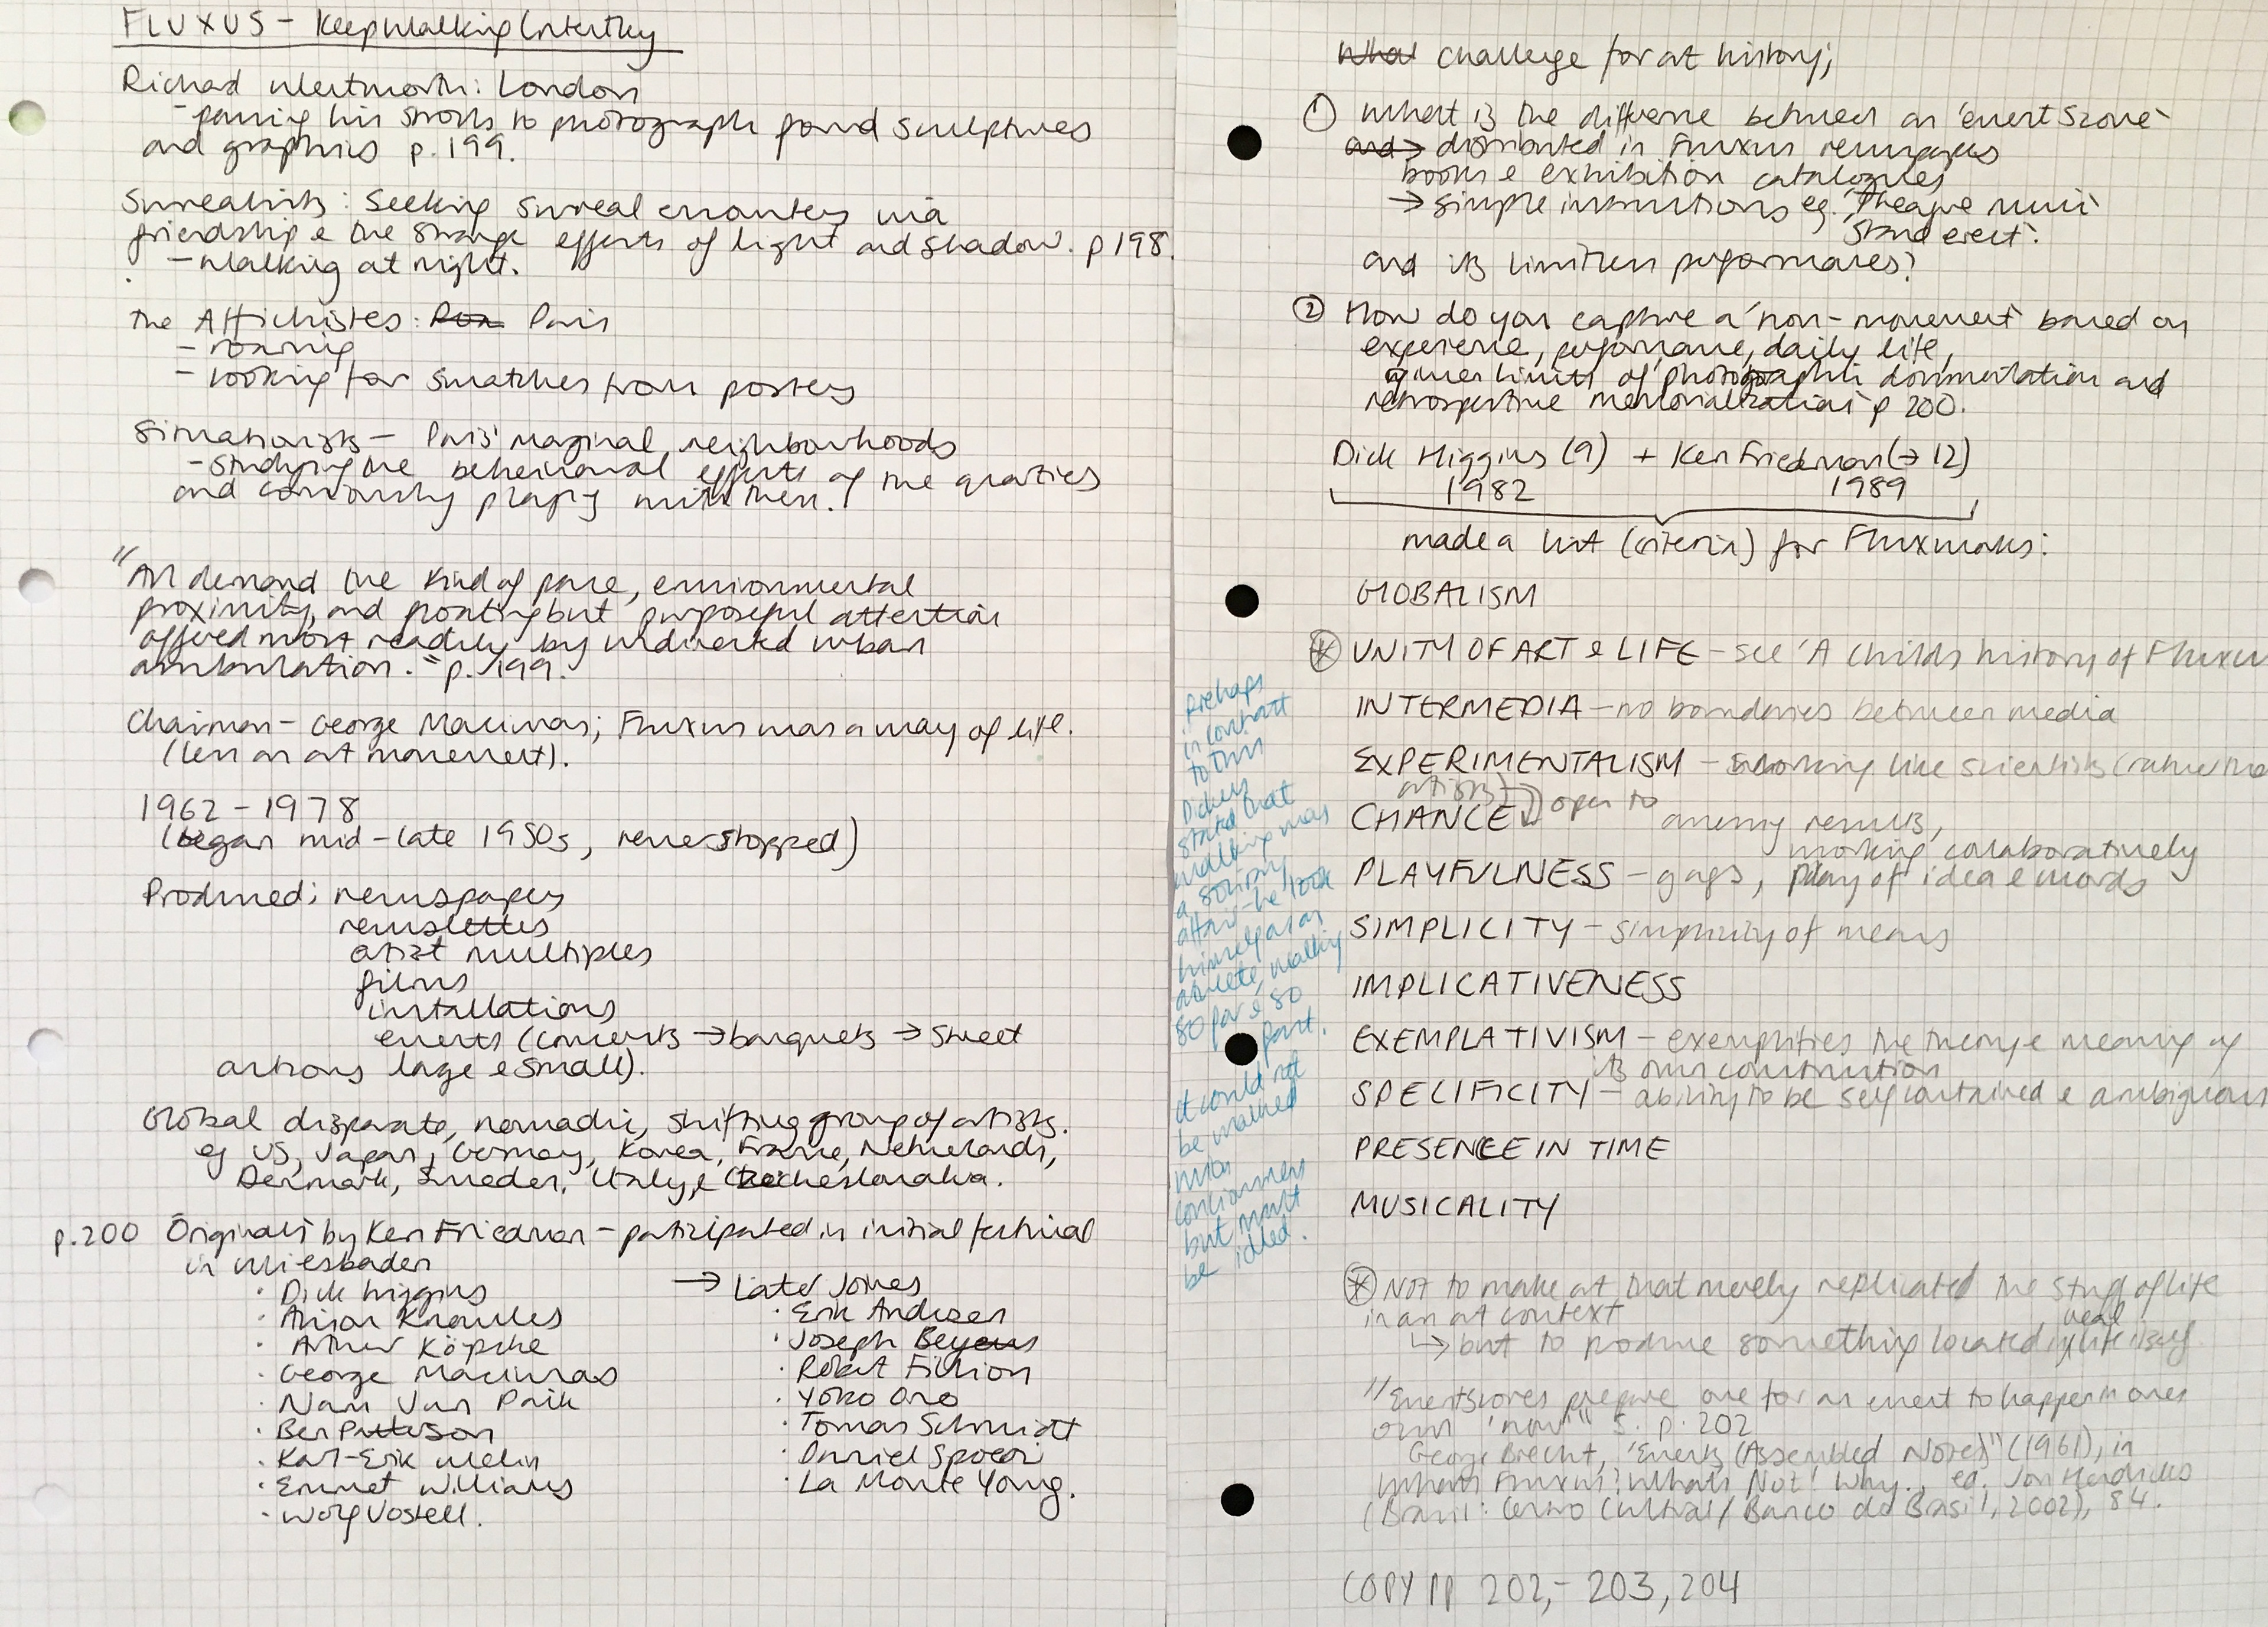 FLUXUS - Keep Walking Intently
Richard Wentworth: London
- pausing his strolls to photograph found sculptures
and graphics p.199.
Surrealists: Seeking surreal encounters via
friendship & the strange effects of light and shadow. p198.
- walking at night.
The Affichistes: Paris
- roaming
- looking for swatches from posters
Situationists - Paris' marginal neighbourhoods
- studying the behavioural effects of the quarties
and consciously playing with them.
"All demand the kind of pace, environmental
proximity, and floating but purposeful attention
offered most readily by undirected urban
ambulation." p.199.
Chairman - George Maciunas; Fluxus was a way of life.
(less an art movement).
1962 - 1978
(began mid-late 1950s, never stopped)
Produced; newspapers
newsletters
artist multiples
films
installations
events (concerts → banquets → street
actions large & small).
Global disparate, nomadic, shifting group of artists.
eg US, Japan, Germany, Korea, France, Netherlands,
Denmark, Sweden, Italy, & Czechoslovakia.
p.200 'Originals' by Ken Friedman - participated in initial festival
in Wiesbaden
· Dick Higgins
· Alison Knowles
· Arthur Köpcke
· George Maciunas
· Nam Jun Paik
· Ben Patterson
· Karl-Erik Welin
· Emmet Williams
· Wolf Vostell.
→ Later Joines
· Erik Andersen
· Joseph Beyeus
· Robert Filliou
· Yoko Ono
· Tomas Schmidt
· Daniel Spoeri
· La Monte Young.
What challenge for art history;
① What is the difference between an 'event score'
and → distributed in Fluxus newspapers
books & exhibition catalogues
→ simple instructions eg. 'Theatre music'
'Stand erect'.
and its limitless performances?
② How do you capture a 'non-movement' based on
experience, performance, daily life,
given limits of photographic documentation and
retrospective memorialization' p 200.
Dick Higgins (9) + Ken Friedman (→ 12)
1982 1989
made a list (criteria) for Fluxworks:
GLOBALISM
* UNITY OF ART & LIFE - see 'A childs history of Fluxus
INTERMEDIA - no boundaries between media
EXPERIMENTALISM - working like scientists (rather than
artists)
CHANCE open to
results,
working collaboratively
PLAYFULNESS - gags, play of idea & words
SIMPLICITY - simplicity of means
IMPLICATIVENESS
EXEMPLATIVISM - exemplifies the theory & meaning of
its own construction
SPECIFICITY - ability to be self contained & ambiguous
PRESENCE IN TIME
MUSICALITY
perhaps
in contrast
to this
Dickens
stated that
walking was
a solitary
affair - he took
himself as an
athlete, walking
80 for & 80
past.
it could not
be walked
with
consciousness
but must
be idled.
* NOT to make art that merely replicated the stuff of life
in an art context
↳ but to produce something located in real life itself.
"Event scores prepare one for an event to happen in ones
own 'now'" 5. p. 202
George Brecht, 'Events (Assembled Notes)" (1961), in
What's Fluxus? What's Not! Why., ed. Jon Hendricks
(Brazil: Centro Cultural / Banco do Brasil, 2002), 84.
COPY pp 202, - 203, 204